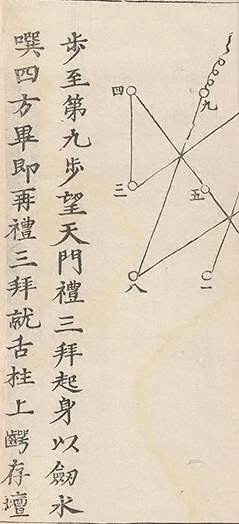 九
四
五
三
八
一
步至第九步望天門禮三拜起身以劒水
噀四方畢即再禮三拜就舌拄上齶存壇